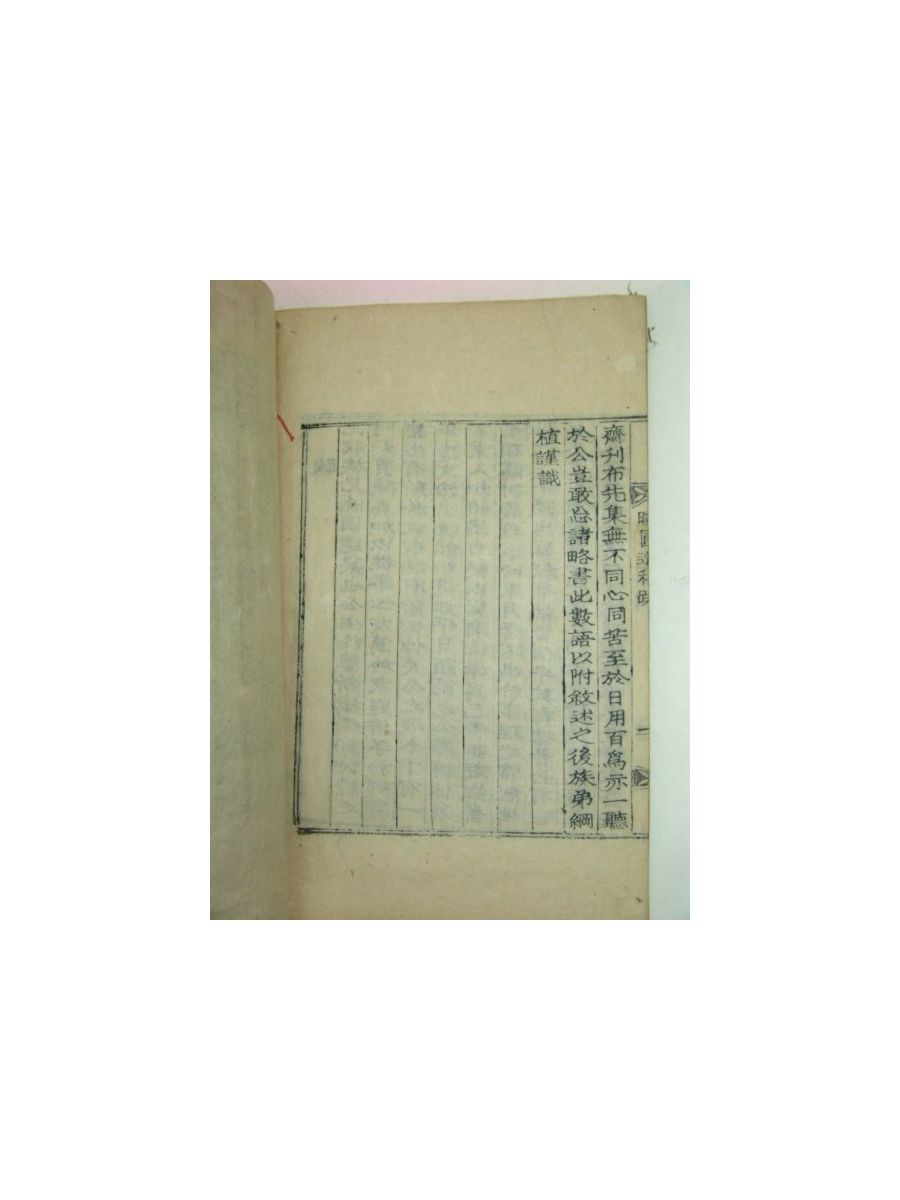 齋刊布先集無不同心同苦至於日用百爲亦一聽
於公豈敢忘諸略書此數語以附敘述之後族弟綱
植謹識